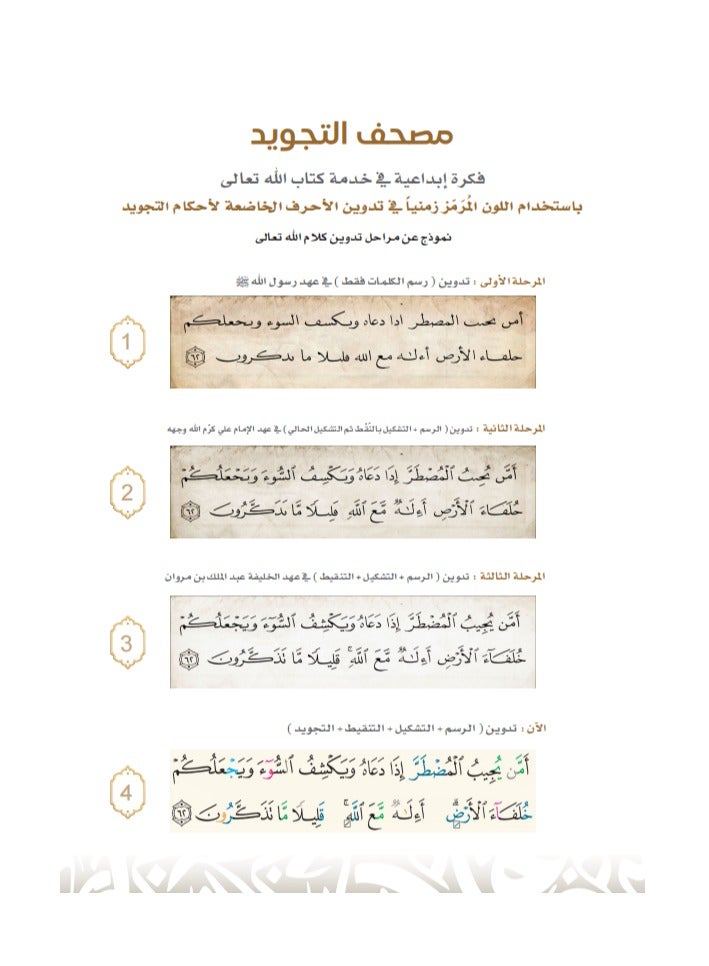 مصحف التجويد
فكرة إبداعية في خدمة كتاب الله تعالى
باستخدام اللون المُرَمَّز زمنياً في تدوين الأحرف الخاضعة لأحكام التجويد
نموذج عن مراحل تدوين كلام الله تعالى
المرحلة الأولى : تدوين ( رسم الكلمات فقط ) في عهد رسول الله ﷺ
1
أمں ٮحٮٮ المصطر ادا دعاه وٮكسڡ السوء وٮحعلكم
حلڡاء الأرص أءلـه مع الله ڡلٮلا ما ٮدكروں ٦٢
المرحلة الثانية : تدوين ( الرسم + التشكيل بالنُّقَط ثم التشكيل الحالي ) في عهد الإمام علي كرّم الله وجهه
2
أَمَّں ٮُحِٮٮُ ٱلۡمُصۡطَرَّ إِدَا دَعَاهُ وَٮَكۡسِڡُ ٱلسُّوٓءَ وَٮَحۡعَلُكُمۡ
حُلَڡَآءَ ٱلۡأَرۡصِ أَءِلَٰهٞ مَّعَ ٱللَّهِ ڡَلِٮلٗا مَّا ٮَدَكَّرُوںَ ٦٢
المرحلة الثالثة : تدوين ( الرسم + التشكيل + التنقيط ) في عهد الخليفة عبد الملك بن مروان
3
أَمَّن يُجِيبُ ٱلۡمُضۡطَرَّ إِذَا دَعَاهُ وَيَكۡشِفُ ٱلسُّوٓءَ وَيَجۡعَلُكُمۡ
خُلَفَآءَ ٱلۡأَرۡضِۗ أَءِلَٰهٞ مَّعَ ٱللَّهِۚ قَلِيلٗا مَّا تَذَكَّرُونَ ٦٢
الآن : تدوين ( الرسم + التشكيل + التنقيط + التجويد )
4
أَمَّن يُجِيبُ ٱلۡمُضۡطَرَّ إِذَا دَعَاهُ وَيَكۡشِفُ ٱلسُّوٓءَ وَيَجۡعَلُكُمۡ
خُلَفَآءَ ٱلۡأَرۡضِۗ أَءِلَٰهٞ مَّعَ ٱللَّهِۚ قَلِيلٗا مَّا تَذَكَّرُونَ ٦٢